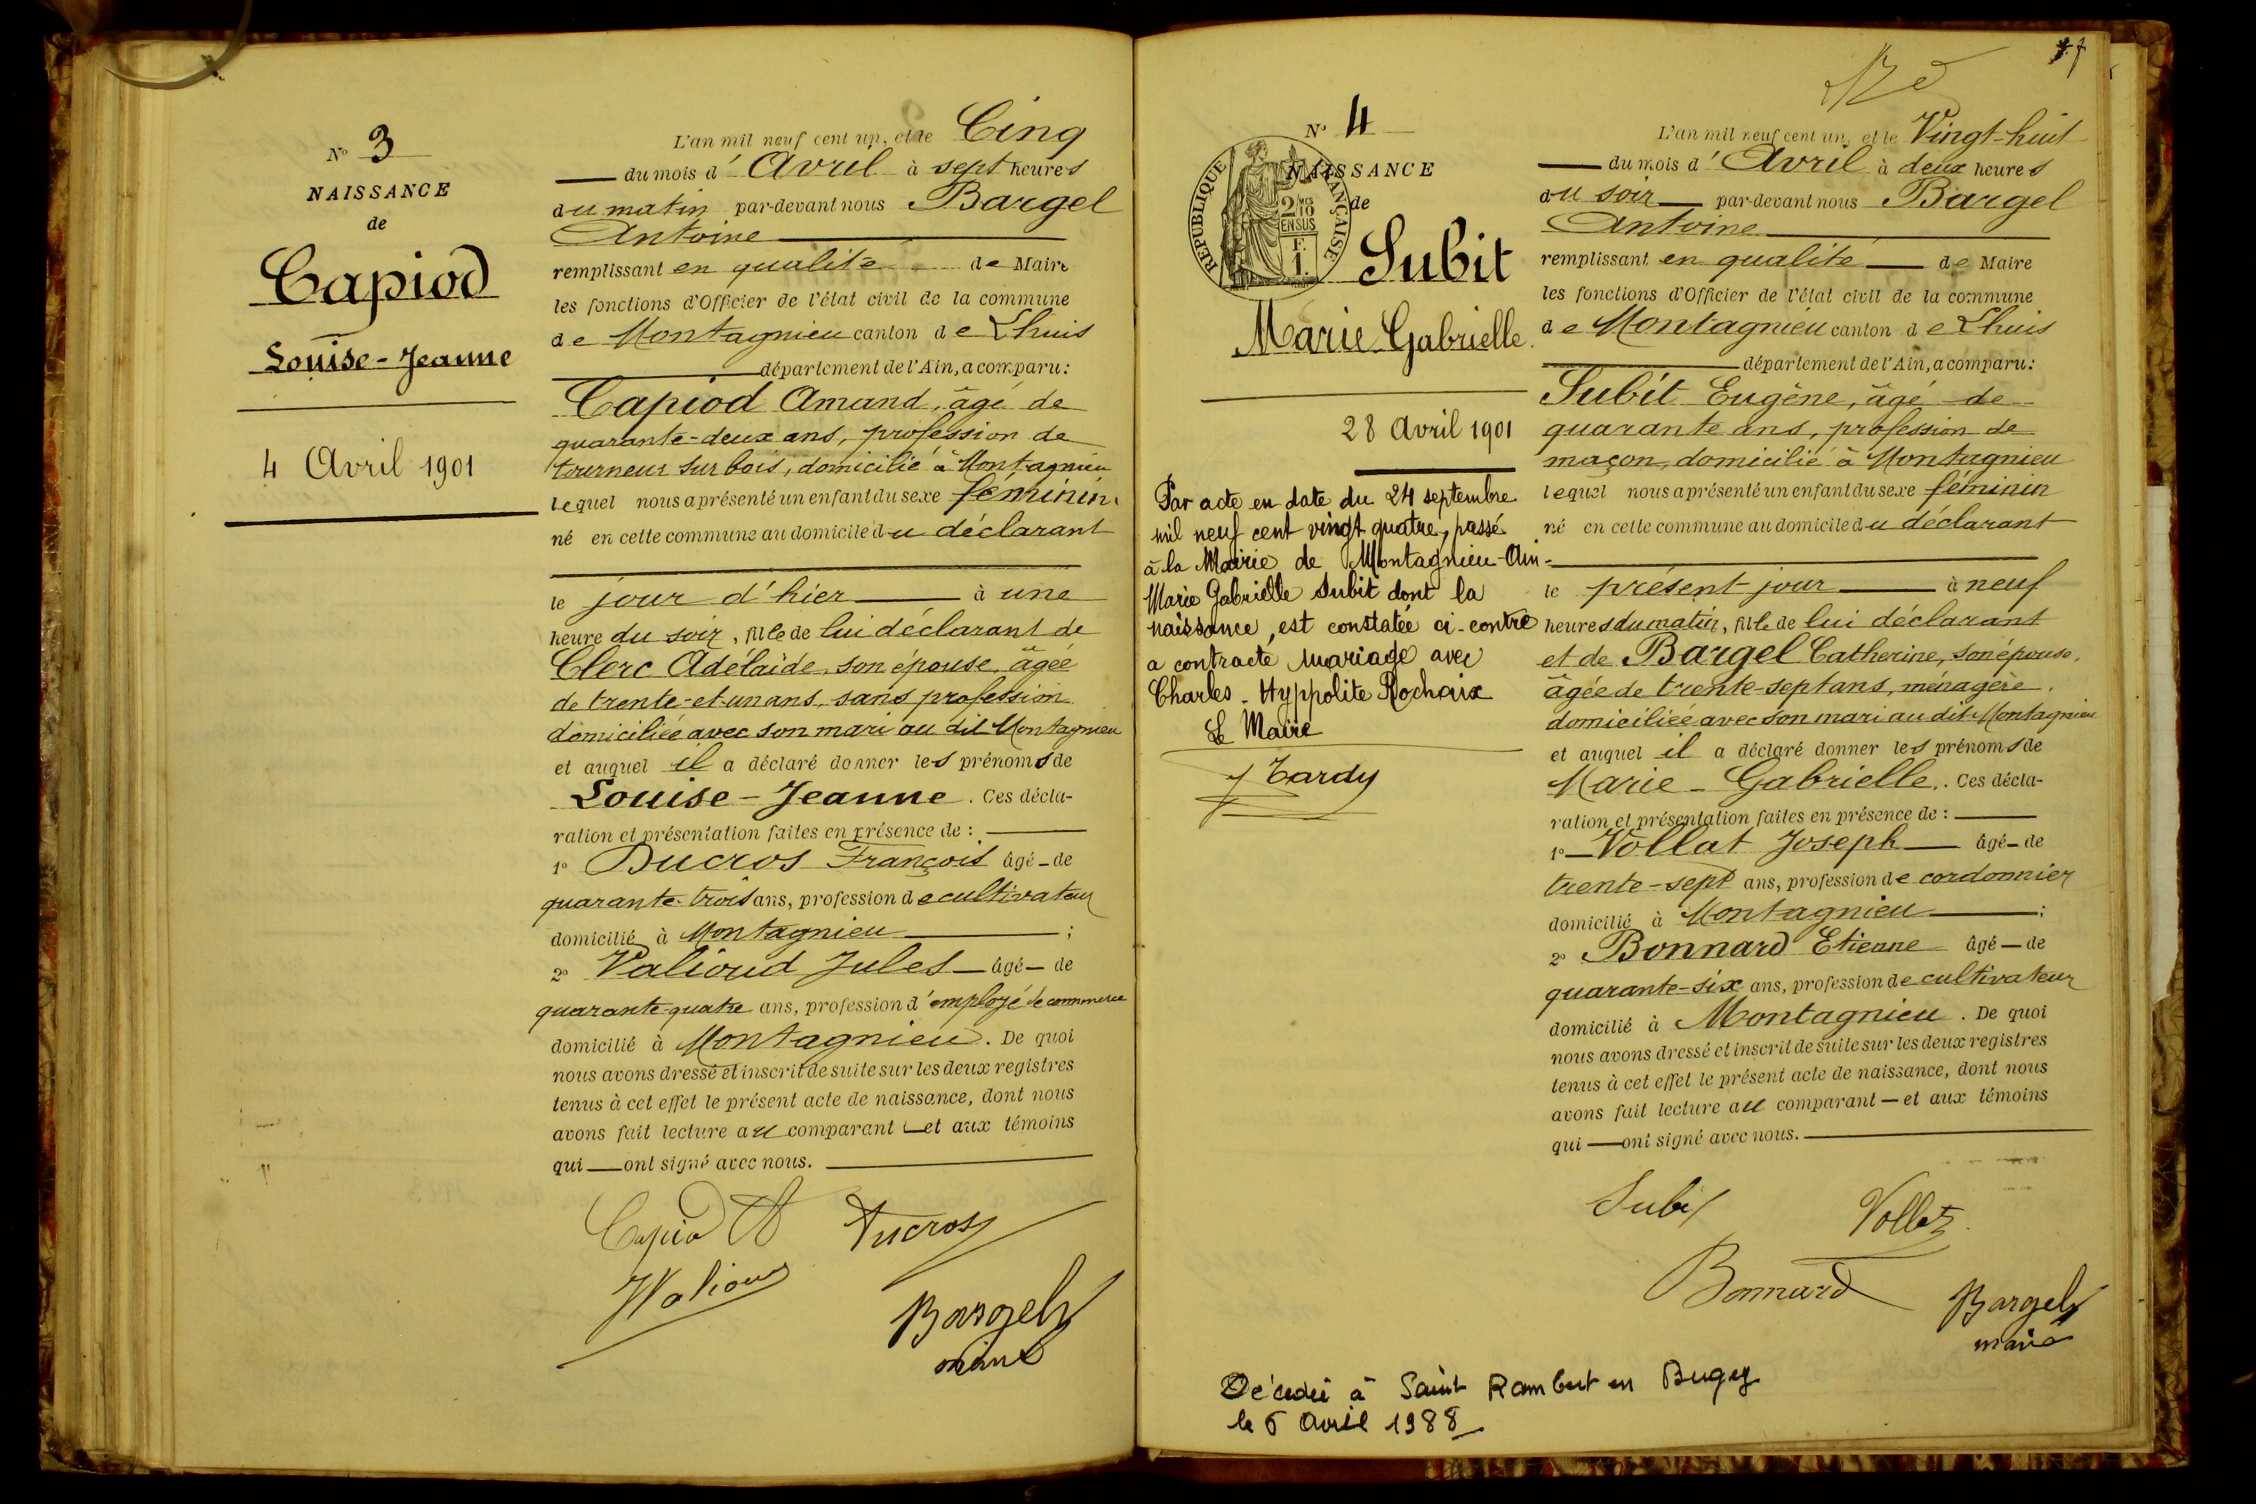 N° 3
NAISSANCE
de
Capiod
Louise-Jeanne
4 Avril 1901
L'an mil neuf cent un, et le Cinq
du mois d'Avril à sept heures
du matin par-devant nous Bargel
Antoine
remplissant en qualité de Maire
les fonctions d'Officier de l'état civil de la commune
de Montagnieu canton de Lhuis
département de l'Ain, a comparu :
Capiod Amand, âgé de
quarante-deux ans, profession de
tourneur sur bois, domicilié à Montagnieu
lequel nous a présenté un enfant du sexe féminin,
né en cette commune au domicile du déclarant
le jour d'hier à une
heure du soir, fille de lui déclarant de
Clerc Adélaïde, son épouse, âgée
de trente-et-un ans, sans profession
domiciliée avec son mari au dit Montagnieu
et auquel il a déclaré donner les prénoms de
Louise-Jeanne. Ces décla-
ration et présentation faites en présence de :
1° Ducros François âgé de
quarante-trois ans, profession de cultivateur
domicilié à Montagnieu ;
2° Valioud Jules âgé de
quarante-quatre ans, profession d'employé de commerce
domicilié à Montagnieu. De quoi
nous avons dressé et inscrit de suite sur les deux registres
tenus à cet effet le présent acte de naissance, dont nous
avons fait lecture au comparant et aux témoins
qui ont signé avec nous.
Capiod A Ducros
Valioud
Bargel
maire
N° 4
NAISSANCE
de
RÉPUBLIQUE FRANÇAISE
2/10
EN SUS
F.
1.
Subit
Marie Gabrielle.
28 Avril 1901
Par acte en date du 24 septembre
mil neuf cent vingt quatre, passé
à la Mairie de Montagnieu-Ain-
Marie Gabrielle Subit dont la
naissance, est constatée ci-contre
a contracté mariage avec
Charles-Hyppolite Rochaix
Le Maire
J Tardy
L'an mil neuf cent un, et le Vingt-huit
du mois d'Avril à deux heures
du soir par-devant nous Bargel
Antoine
remplissant en qualité de Maire
les fonctions d'Officier de l'état civil de la commune
de Montagnieu canton de Lhuis
département de l'Ain, a comparu :
Subit Eugène, âgé de
quarante ans, profession de
maçon, domicilié à Montagnieu
lequel nous a présenté un enfant du sexe féminin
né en cette commune au domicile du déclarant
le présent jour à neuf
heures du matin, fille de lui déclarant
et de Bargel Catherine, son épouse,
âgée de trente-sept ans, ménagère,
domiciliée avec son mari au dit Montagnieu
et auquel il a déclaré donner les prénoms de
Marie-Gabrielle. Ces décla-
ration et présentation faites en présence de :
1° Vollat Joseph âgé de
trente-sept ans, profession de cordonnier
domicilié à Montagnieu ;
2° Bonnard Etienne âgé de
quarante-six ans, profession de cultivateur
domicilié à Montagnieu. De quoi
nous avons dressé et inscrit de suite sur les deux registres
tenus à cet effet le présent acte de naissance, dont nous
avons fait lecture au comparant et aux témoins
qui ont signé avec nous.
Subit Vollat
Bonnard Bargel
maire
Décédée à Saint Rambert en Bugey
le 6 Avril 1988